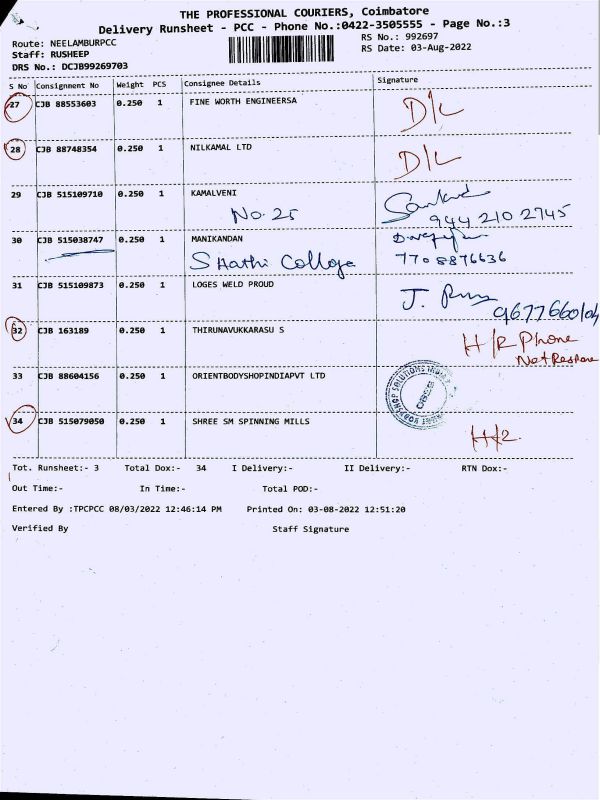 THE PROFESSIONAL COURIERS, Coimbatore
Delivery Runsheet - PCC - Phone No.:0422-3505555 - Page No.:3
Route: NEELAMBURPCC
RS No.: 992697
Staff: RUSHEEP
RS Date: 03-Aug-2022
DRS No.: DCJB99269703
S No Consignment No Weight PCS Consignee Details Signature
27 CJB 88553603 0.250 1 FINE WORTH ENGINEERSA
D/L
28 CJB 88748354 0.250 1 NILKAMAL LTD
D/L
29 CJB 515109710 0.250 1 KAMALVENI
No. 25
944 210 2745
30 CJB 515038747 0.250 1 MANIKANDAN
SHathi College
7708876636
31 CJB 515109873 0.250 1 LOGES WELD PROUD
J.
32 CJB 163189 0.250 1 THIRUNAVUKKARASU S
H/R Phone
33 CJB 88604156 0.250 1 ORIENTBODYSHOPINDIAPVT LTD
34 CJB 515079050 0.250 1 SHREE SM SPINNING MILLS
Tot. Runsheet:- 3 Total Dox:- 34 I Delivery:- II Delivery:- RTN Dox:-
Out Time:- In Time:- Total POD:-
Entered By :TPCPCC 08/03/2022 12:46:14 PM Printed On: 03-08-2022 12:51:20
Verified By Staff Signature